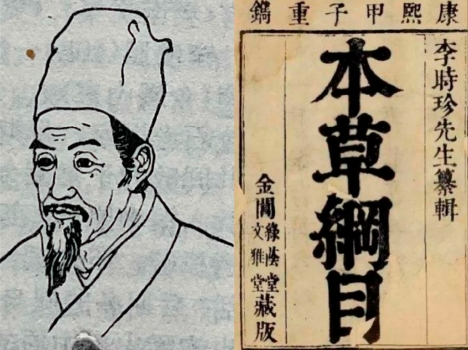 康熙甲子重鐫
李時珍先生纂輯
本草綱目
金閶綠蔭堂文雅堂藏版